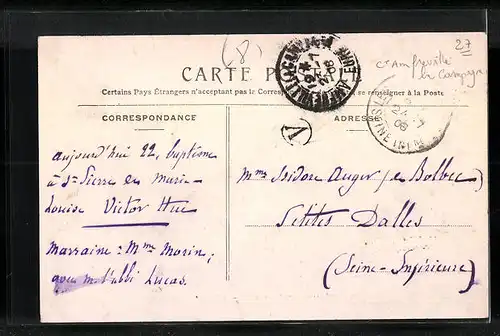 (8)
27
Amfreville
la Campagne
CARTE
Certains Pays Étrangers n'acceptent pas le se renseigner à la Poste
CORRESPONDANCE
ADRESSE
A
aujourd'hui 22, baptême
à St Pierre en
Louise Victor Hue
Marraine: Mme Morin;
avec m. l'abbé Lucas.
Mme Isidore Auger (de Bolbec)
Petites Dalles
(Seine-Inférieure)